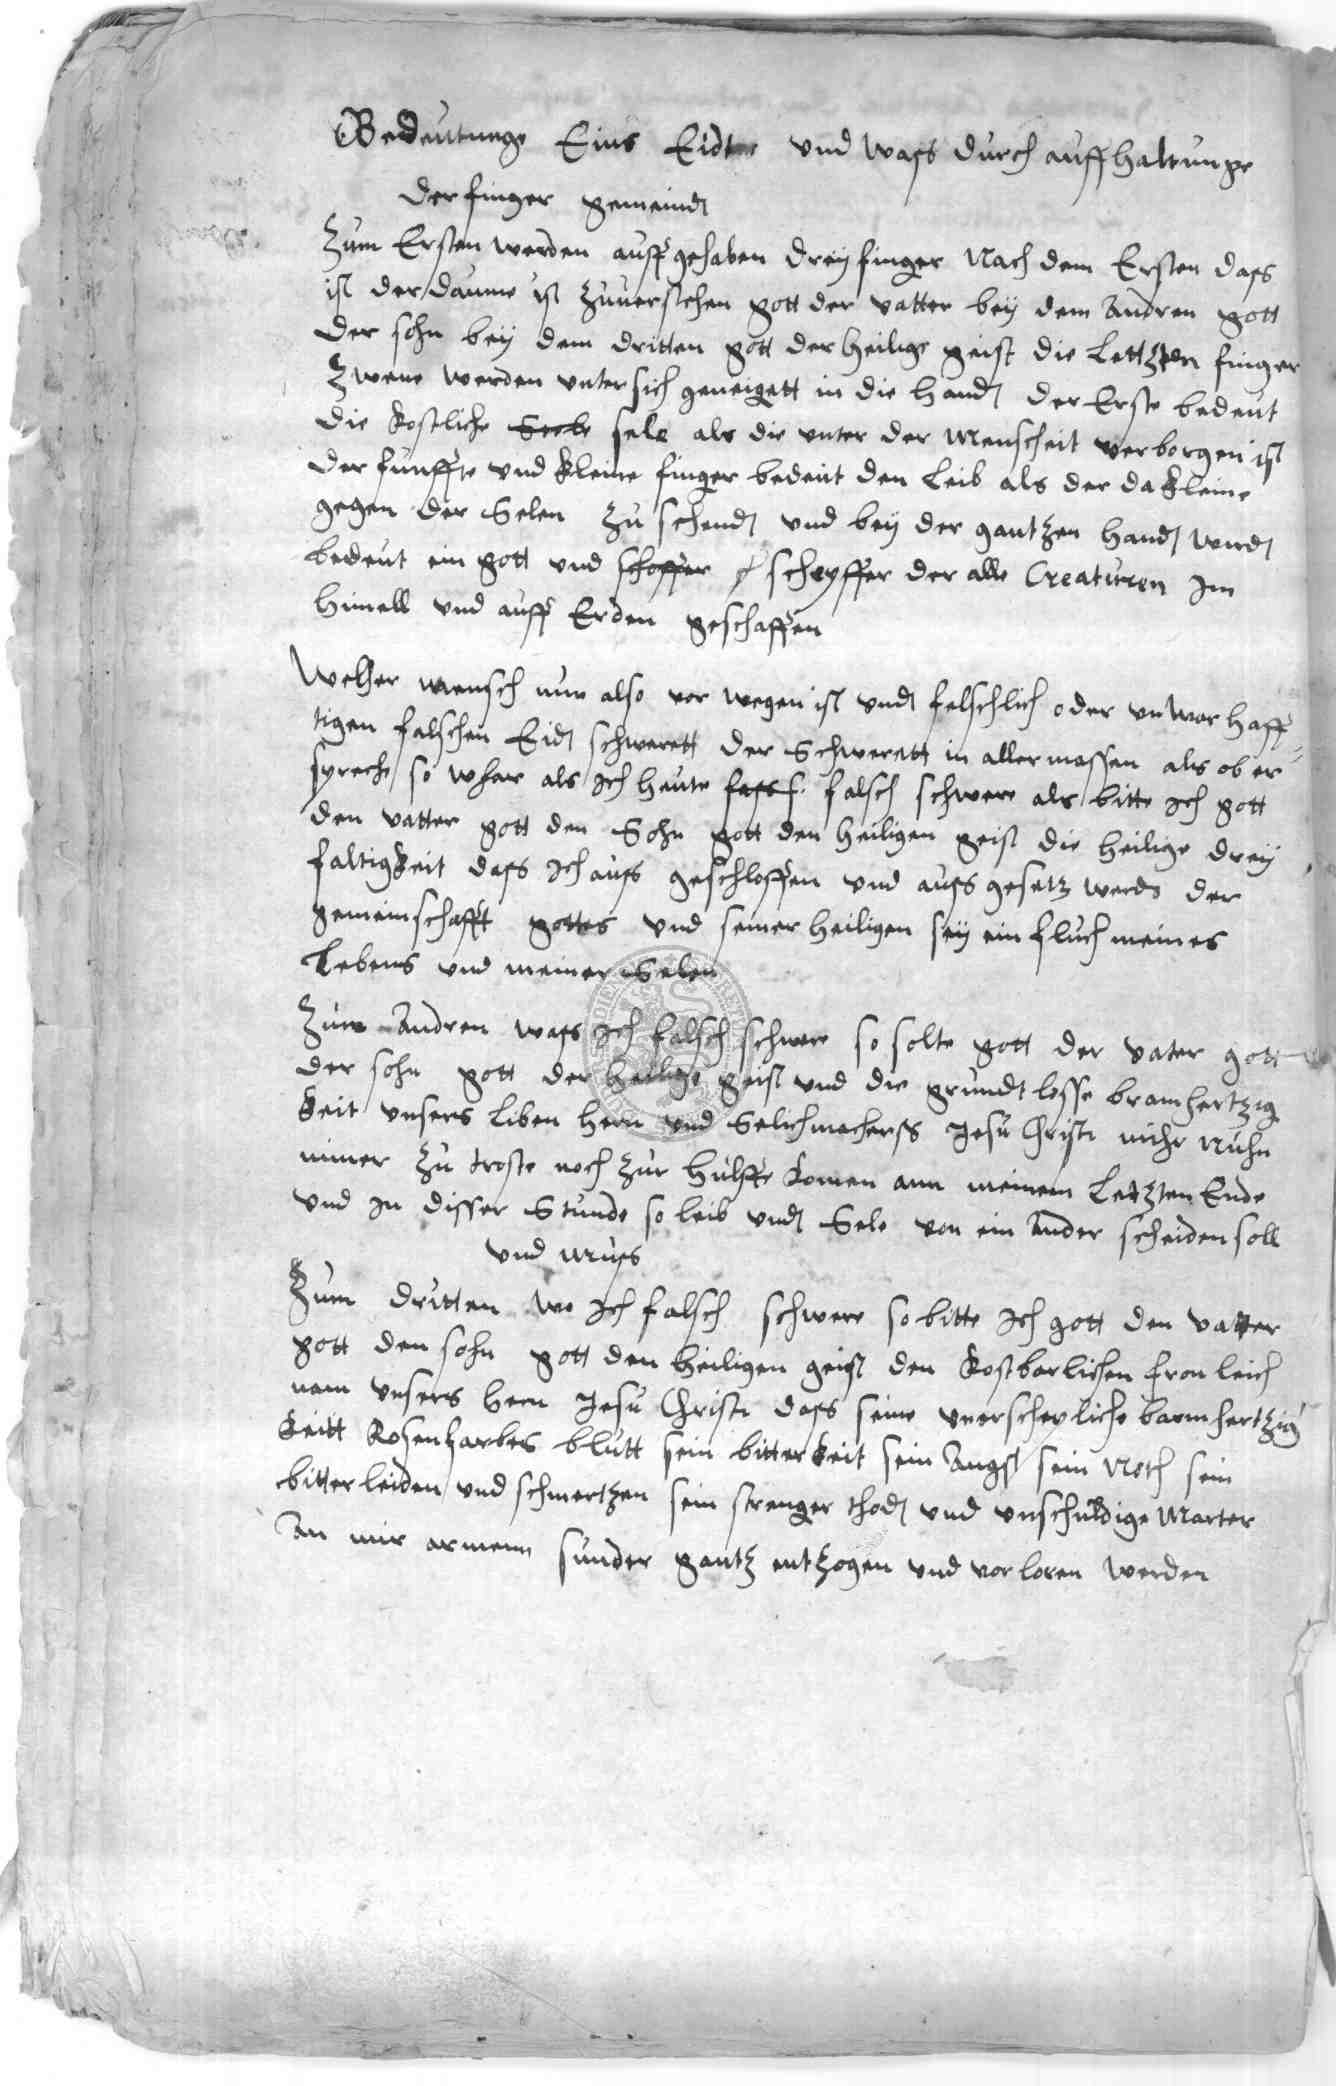 Bedeutunge Eins Eidte und wass durch auffhaltunge
der finger gemeindt
Zum Ersten werden auffgehaben drey finger Nach dem Ersten dass
ist der daume ist zuuerstehen gott der vatter bey dem Andren gott
der sohn bey dem dritten gott der heilige geist die Lettzten finger
Zwene werden untersich geneigett in die handt der Erste bedeut
die kostliche Seele sele als die unter der Menscheit verborgen ist
der funffte und kleine finger bedeut den Leib als der da kleine
gegen der Selen zu schendt und bey der gantzen handt wirdt
bedeut ein gott und schoffer schepffer der alle Creaturen Im
himell und auff Erden geschaffen
Welher mensch nun also vor wegen ist undt felschlich oder unwarhaff
tigen falschen Eidt schwerett der Schwerett in allermassen als ob er
spreche so whar als Ich heute falsch schwere als bitte Ich gott
den vatter gott den Sohn gott den heiligen geist die heilige drey
faltigkeit dass Ich auss geschlossen und auss gesetz werde der
gemeinschafft gottes und seiner heiligen sey ein fluch meines
Lebens und meiner Selen
Zum Andren wass Ich falsch schwere so solte gott der vater gott
der sohn gott der heilige geist und die grundtlosse bramhertzig
keit unsers Liben hern und Selichmacherss Jesu Christi mihr Nuhn
nimer zu troste noch zur hulffe komen ann meinem Letzten Ende
und in disser Stunde so leib undt Sele von ein Ander scheiden soll
und muss
Zum dritten wo Ich falsch schwere so bitte Ich gott den vatter
gott den sohn gott den heiligen geist den kostbarlichen fron leich
nam unsers hern Jesu Christi dass seine unerschepliche barmhertzig
keitt Rosenfarbes blutt sein bitterkeit sein Angst sein Noth sein
bitter leiden und schmertzen sein strenger thodt und unschuldige Marter
An mir armenn sunder gantz entzogen und vorloren werden